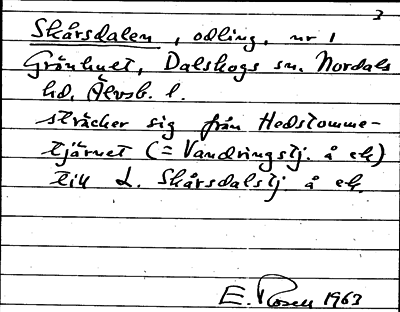 3
Skårsdalen, odling, nr 1
Gränhult, Dalskogs sn. Nordals
hd, Älvsb. l.
sträcker sig från Hedstomme-
tjärnet (= Vandringstj. å ek)
till L. Skårsdalstj å ek.
E. Rosen 1963